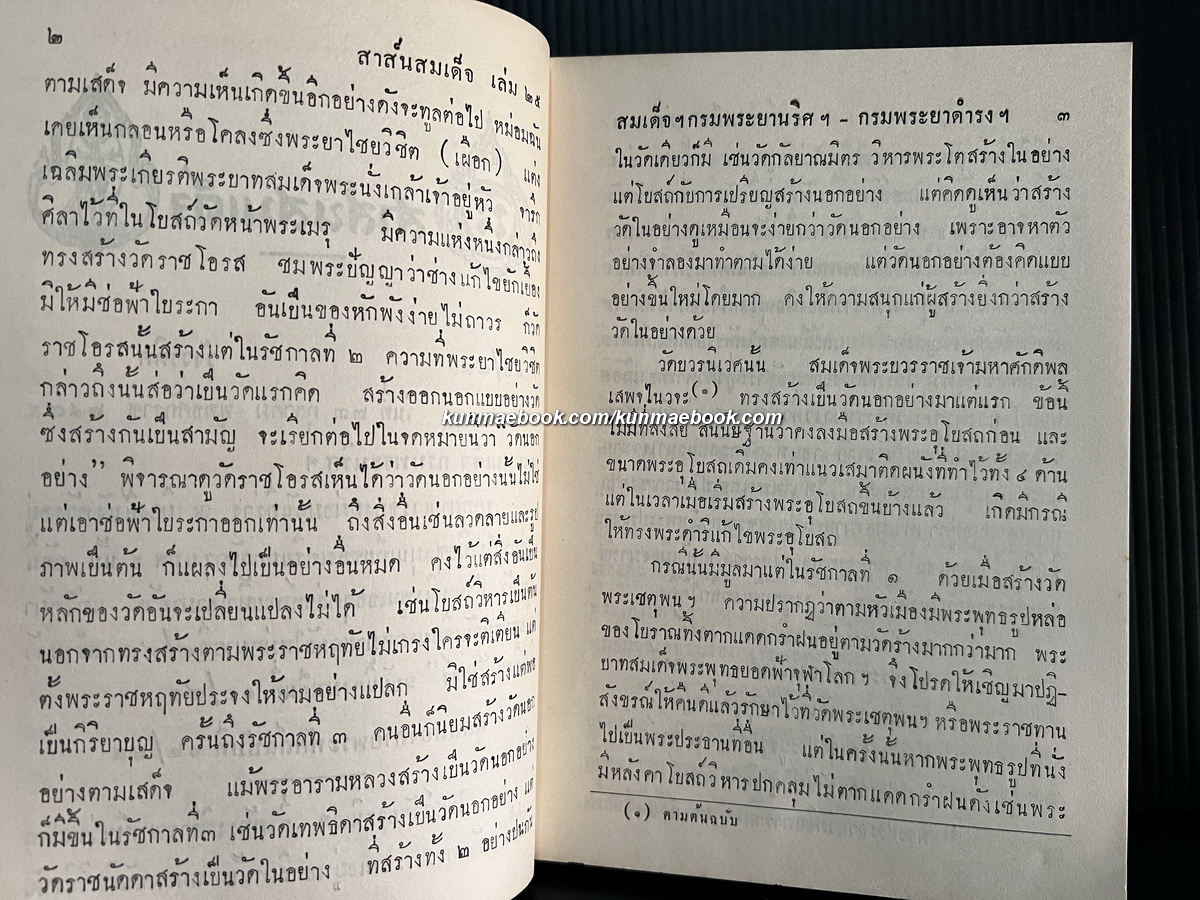 ๒
สาส์นสมเด็จ เล่ม ๒๕
ตามเสด็จ มีความเห็นเกิดขึ้นอีกอย่างดังจะทูลต่อไป หม่อมฉัน
เคยเห็นกลอนหรือโคลงซึ่งพระยาไชยวิชิต (เผือก) แต่ง
เฉลิมพระเกียรติพระบาทสมเด็จพระนั่งเกล้าเจ้าอยู่หัว จารึก
ศิลาไว้ที่ในโบสถ์วัดหน้าพระเมรุ มีความแห่งหนึ่งกล่าวถึง
ทรงสร้างวัดราชโอรส ชมพระปัญญาว่าช่างแก้ไขยักเยื้อง
มิให้มีช่อฟ้าใบระกา อันเป็นของหักพังง่ายไม่ถาวร ก็วัด
ราชโอรสนั้นสร้างแต่ในรัชกาลที่ ๒ ความที่พระยาไชยวิชิต
กล่าวถึงนั้นส่อว่าเป็นวัดแรกคิด สร้างออกนอกแบบอย่างวัด
ซึ่งสร้างกันเป็นสามัญ จะเรียกต่อไปในจดหมายนี้ว่า “วัดนอก
อย่าง” พิจารณาดูวัดราชโอรสเห็นได้ว่าวัดนอกอย่างนั้นไม่ใช่
แต่เอาช่อฟ้าใบระกาออกเท่านั้น ถึงสิ่งอื่นเช่นลวดลายและรูป
ภาพเป็นต้น ก็แผลงไปเป็นอย่างอื่นหมด คงไว้แต่สิ่งอันเป็น
หลักของวัดอันจะเปลี่ยนแปลงไม่ได้ เช่นโบสถ์วิหารเป็นต้น
นอกจากทรงสร้างตามพระราชหฤทัยไม่เกรงใครจะติเตียน แต่
ตั้งพระราชหฤทัยประจงให้งามอย่างแปลก มิใช่สร้างแต่พอ
เป็นกิริยาบุญ ครั้นถึงรัชกาลที่ ๓ คนอื่นก็นิยมสร้างวัดนอก
อย่างตามเสด็จ แม้พระอารามหลวงสร้างเป็นวัดนอกอย่าง
ก็มีขึ้นในรัชกาลที่๓ เช่นวัดเทพธิดาสร้างเป็นวัดนอกอย่าง แต่
วัดราชนัดดาสร้างเป็นวัดในอย่าง ที่สร้างทั้ง ๒ อย่างปนกัน
สมเด็จฯกรมพระยานริศฯ - กรมพระยาดำรงฯ ๓
ในวัดเดียวก็มี เช่นวัดกัลยาณมิตร วิหารพระโตสร้างในอย่าง
แต่โบสถ์กับการเปรียญสร้างนอกอย่าง แต่คิดดูเห็นว่าสร้าง
วัดในอย่างดูเหมือนจะง่ายกว่าวัดนอกอย่าง เพราะอาจหาตัว
อย่างจำลองมาทำตามได้ง่าย แต่วัดนอกอย่างต้องคิดแบบ
อย่างขึ้นใหม่โดยมาก คงให้ความสนุกแก่ผู้สร้างยิ่งกว่าสร้าง
วัดในอย่างด้วย
วัดบวรนิเวศนั้น สมเด็จพระบวรราชเจ้ามหาศักดิพล
เสพจุไนวจะ(๑) ทรงสร้างเป็นวัดนอกอย่างมาแต่แรก ข้อนี้
ไม่มีที่สงสัย สันนิษฐานว่าคงลงมือสร้างพระอุโบสถก่อน และ
ขนาดพระอุโบสถเดิมคงเท่าแนวเสมาติดผนังที่ทำไว้ทั้ง ๔ ด้าน
แต่ในเวลาเมื่อเริ่มสร้างพระอุโบสถขึ้นบ้างแล้ว เกิดมีกรณี
ให้ทรงพระดำริแก้ไขพระอุโบสถ
กรณีนั้นมีมูลมาแต่ในรัชกาลที่ ๑ ด้วยเมื่อสร้างวัด
พระเชตุพนฯ ความปรากฏว่าตามหัวเมืองมีพระพุทธรูปหล่อ
ของโบราณทิ้งตากแดดกรำฝนอยู่ตามวัดร้างมากกว่ามาก พระ
บาทสมเด็จพระพุทธยอดฟ้าจุฬาโลกฯ จึงโปรดให้เชิญมาปฏิ-
สังขรณ์ให้คืนดีแล้วรักษาไว้ที่วัดพระเชตุพนฯ หรือพระราชทาน
ไปเป็นพระประธานที่อื่น แต่ในครั้งนั้นหากพระพุทธรูปที่นั่ง
มีหลังคาโบสถ์วิหารปกคลุมไม่ตากแดดกรำฝนดังเช่นพระ
(๑) ตามต้นฉบับ
kunmaebook.com/kunmaebook.com